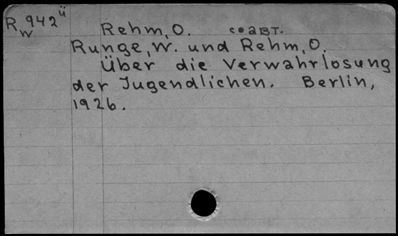 R 942ü
w
Rehm, O. соавт.
Runge, W. und Rehm, O.
Über die Verwahrlosung
der Jugendlichen. Berlin,
1926.